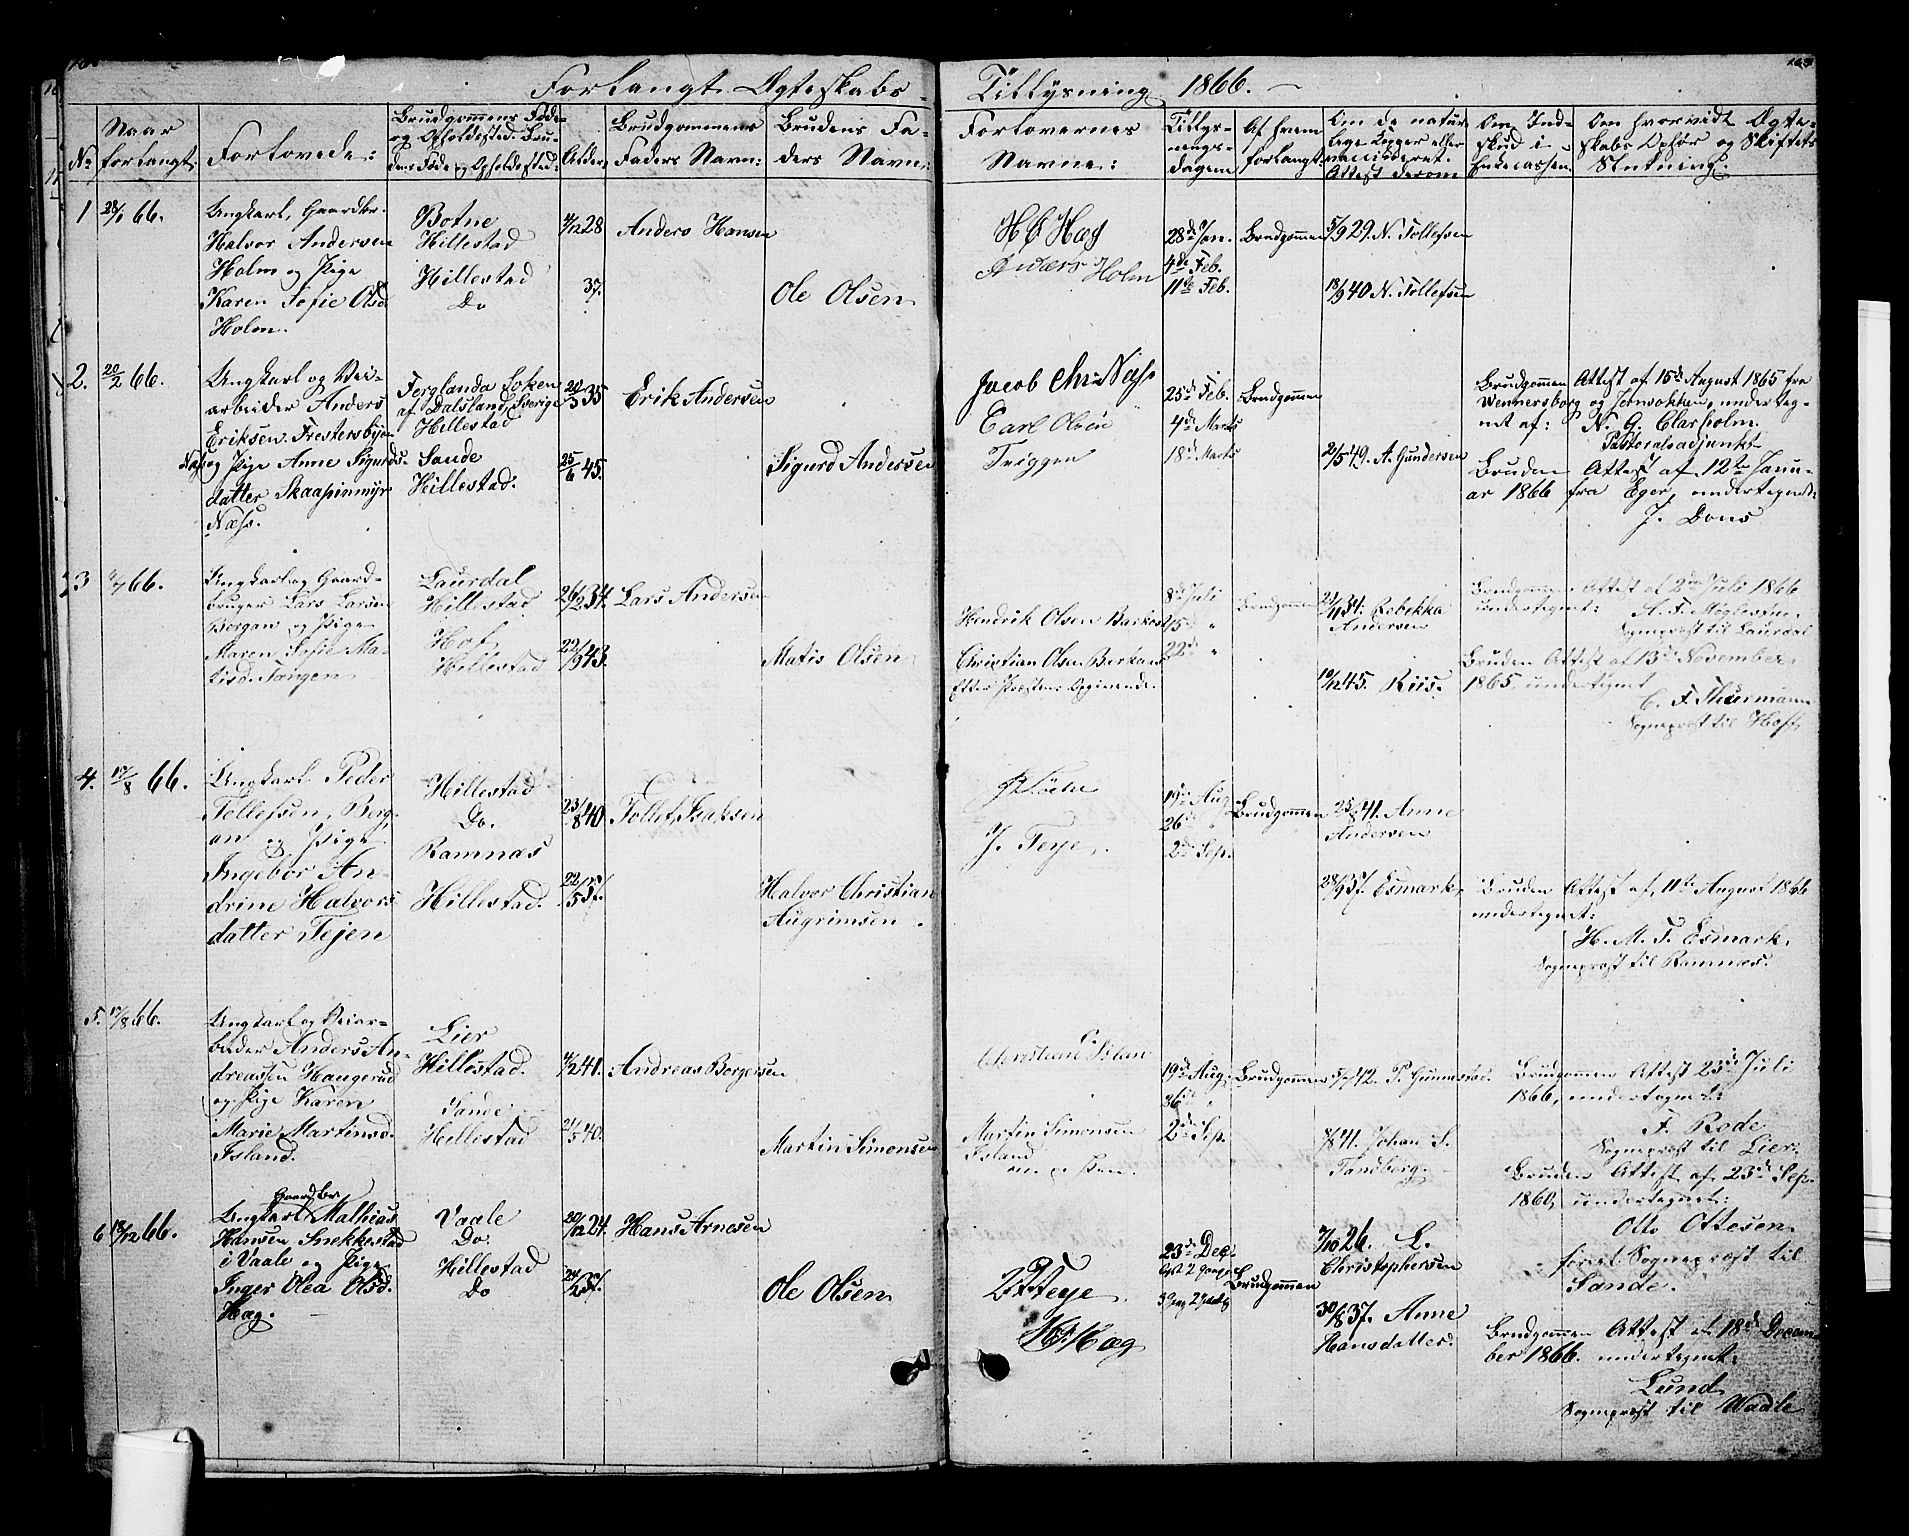 Forlangt Ægteskabs-
Tillysning 1866.
No
Naar forlangt:
Forlovede:
Brudgommens Føde-
og Opholdssted. Bru-
dens Føde og Opholdssted:
Alder:
Brudgommens
Faders Navn:
Brudens Fa-
ders Navn:
Forlovernes
Navne:
Tillys-
nings-
dagene
Af hvem
forlangt:
Om de natur-
lige Kopper eller
vaccineret.
Attest derom
Om Ind-
skud i
Enkecassen.
Om hvorvidt Ægte-
skabs Opfør og Skiftets
Slutning:
1 28/1 66.
Ungkarl, Gaardbr.
Halvor Andersen
Holm og Pige
Karen Sofie Olsd.
Holm.
Botne
Hillestad
Hillestad
Do
4/12 28
37.
Anders Hansen
Ole Olsen
H E Hæg
Anders Holm
28de Jan.
4de Feb.
11te Feb.
Brudgommen
5/9 29. N. Tollefsen
18/9 40 N. Tollefsen
2. 20/2 66.
Ungkarl og Vei-
arbeider Anders
Eriksen Frestersbyn
Næs og Pige Anne Sigurds-
datter Skaapinmyr
Næss.
Ferglanda Soken
af Dalsland, Sverige
Hillestad
Sande
Hillestad.
20/3 35
25/6 45.
Erik Andersen
Sigurd Andersen
Jacob Chr. Næss
Carl Olsen
Triggen
25de Feb.
4de Marts
18de Marts
Brudgommen
2/5 49. A. Gundersen
Brudgommen Attest af 15de August 1865 fra
Wennersborg og Jernsokken, underteg-
net af: N. G. Clarholm.
Pastoralsadjunkt
Bruden Attest af 12te Janu-
ar 1866 fra Eger, undertegnet:
J. Dons
3 /7 66.
Ungkarl og Gaard-
bruger Lars Larsen
Bergan og Pige
Maren Sofie Ma-
tisd. Tangen
Laurdal
Hillestad
Hof
Hillestad
26/2 34.
22/9 43.
Lars Andersen
Matis Olsen
Hendrik Olsen Barkost
Christian Olsen Berkaas
Efter Præstens Opgivende.
8de Juli
15de "
22de "
Brudgommen
21/11 34. Rebekka
Andersen
10/12 45. Riis.
Brudgommen Attest af 2den Juli 1866
undertegnet:
Sogneprest til Laurdal
Bruden Attest af 13de November
1865, undertegnet
C. F. Thurmann
Sogneprest til Hoff,
4. 17/8 66.
Ungkarl Peder
Tollefsen, Berg-
an og Pige
Ingebor An-
drine Halvors
datter Tejen
Hillestad
Do.
Ramnæs
Hillestad.
23/8 40
22/5 37.
Tollef Isaksen
Halvor Christian
Augrimsen.
J. Teye.
19de Aug.
26de "
2den Sep.
Brudgommen
25/8 41. Anne
Andersen
28/9 37. Esmark,
Bruden Attest af, 11te August 1866
undertegnet:
H. M. T. Esmark,
Sogneprest til Ramnæs.
5. 17/8 66.
Ungkarl og Veiar-
beider Anders An-
dreassen Haugerud
og Pige Karen
Marie Martinsd.
Island.
Lier
Hillestad.
Sande
Hillestad
4/2 41.
21/5 40.
Andreas Borgersen
Martin Simonsen
Christian Islan
Martin Simonsen
Island
19de Aug.
26de "
2den Sep.
Brudgommen
5/7 42. P. Gunnestad.
8/8 41. Johan S.
Tandberg.
Brudgommen Attest 23de Juli
1866, undertegnet:
F. Rode
Sogneprest til Lier.
Bruden Attest af 23de Sep.
1860, undertegnet:
Otto Ottesen
forrel. Sogneprest til
Sande.
6 18/12 66.
Gaardbr.
Ungkarl Mathias
Hansen Snekkestad
i Vaale og Pige
Inger Olea Olsd.
Hæg.
Vaale
Do.
Hillestad
Do
20/12 24.
24/12 37.
Hans Arnesen
Ole Olsen
Teye.
Hæg
23de Dec.
Brudgommen
7/10 26. L.
Christophersen
30/8 37. Anne
Hansdatter.
Brudgommen Attest af 18de Decem-
ber 1866. undertegnet:
Lund
Sogneprest til Waale